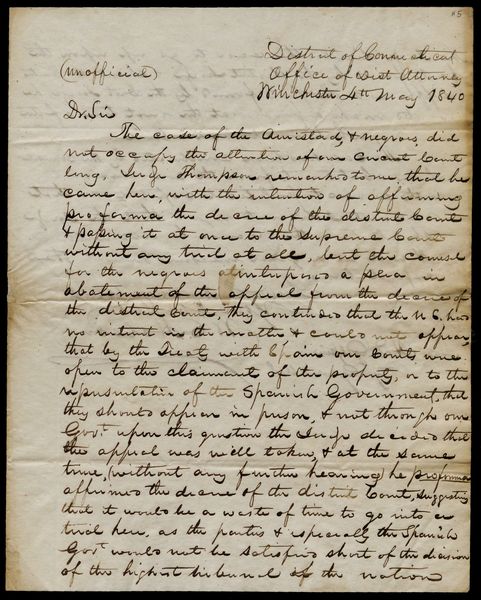 115
District of Connecticut
(unofficial) Office of Dist Attorney
Winchester 4th May 1840
Dr. Sir
The case of the Amistad, & negroes, did
not occupy the attention of our Circuit Court
long, Judge Thompson remarked to me that he
came here, with the intention of affirming
pro forma the decree of the district Court
& passing it at once to the Supreme Court
without any trial at all, but the counsel
for the negroes interposed a plea in
abatement of the appeal from the decree of
the district Court, they contended that the U.S. had
no interest in the matter & could not appear,
that by the Treaty with Spain our Courts were
open to the claimants of the property, or to the
representative of the Spanish Government, that
they should appear in person, & not through our
Govt. upon this question the Judge decided that
the appeal was well taken, & at the same
time, (without any further hearing) he proforma
affirmed the decree of the district Court, suggesting
that it would be a waste of time to go into a
trial here, as the parties & especially the Spanish
Govt. would not be satisfied short of the decision
of the highest tribunal of the nation